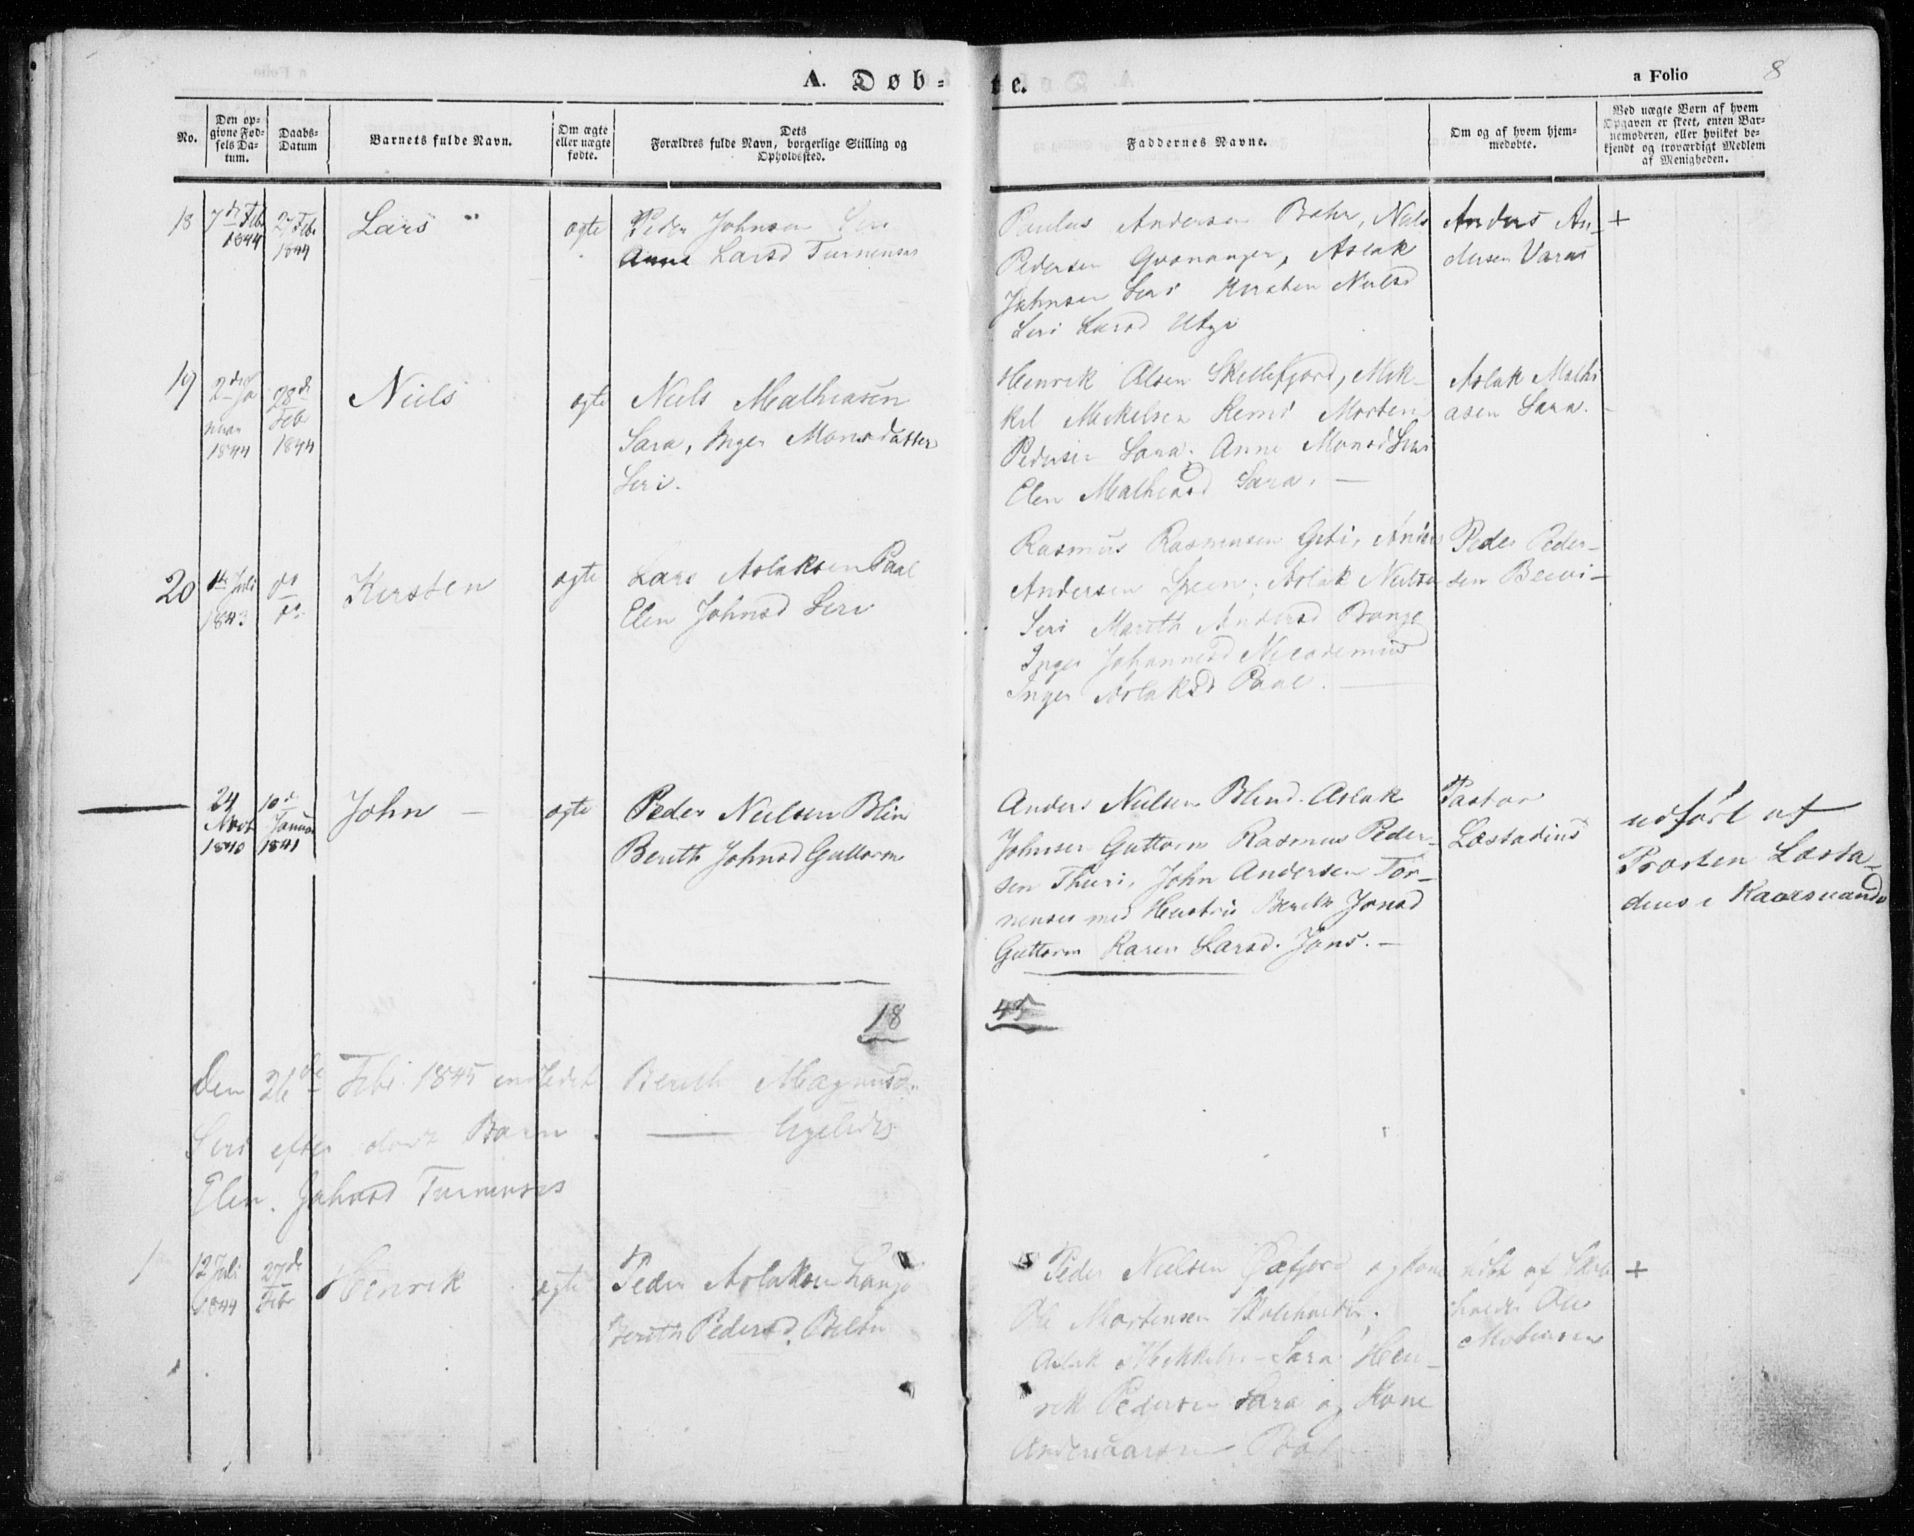 A. Døb-te.
a Folio 8
No.
Den op-
givne Fød-
sels Da-
tum.
Daabs-
Datum
Barnets fulde Navn.
Om ægte
eller uægte
fødte.
Dets
Forældres fulde Navn, borgerlige Stilling og
Opholdssted.
Faddernes Navne.
Om og af hvem hjem-
medøbte.
Ved uægte Børn af hvem
Opgaven er skeet, enten Bar-
nemoderen, eller hvilket be-
kjendt og troværdigt Medlem
af Menigheden.
18
7de Feb
1844
27 Feb
1844
Lars
ægte
Peder Johnsen Siri
Anne Larsd Turnensis
Paulus Andersen Bahr, Niels
Pedersen Qvananger, Aslak
Johnsen Siri Kirsten Nielsd
Siri Larsd Utzi
Anders An-
dersen Varas
+
19
2den Ja
nuar
1844
28de
Feb
1844
Niels
ægte
Niels Mathiasen
Sara, Inger Monsdatter
Siri.
Henrik Olsen Skillefjord, Mik-
kel Mikkelsen Kemi Morten
Pedersen Sara, Anne Monsd Siri
Elen Mathiasd Sara. —
Aslak Mathi
asen Sara.
20
1ste Juli
1843
do
do
Kirsten
ægte
Lars Aslaksen Paal
Elen Johnsd Siri
Rasmus Rasmussen Gebi, Anders
Andersen Spein, Aslak Nielsen
Siri Marith Andersd Bonge
Inger Johannesd Nicodemus
Inger Aslaksd Paal. —
Peder Peder-
sen Beevi-
24
Novb
1840
10de
Januar
1841
John —
ægte
Peder Nielsen Blin
Berith Johnsd Guttorm
Anders Nielsen Blind. Aslak
Johnsen Guttorm Rasmus Peder-
sen Thuri, John Andersen Tor-
nensis med Hustru Berith Jonsd
Guttorm Karen Larsd. Jons. —
Pastor
Læstadius
udført af
Prosten Læsta-
dius i Kaaresuando
18
45
Den 26de Febr 1845 indledet Berith Magnusd.
Siri efter dødt Barn. — Ugeldig
Elen Johnsd Turnensis
1
12 Juli
1844
27de
Febr
Henrik
ægte
Peder Aslaksen Lango
Berith Pedersd. Beltn
Peder Nielsen Qvæfjord og Kone
Ole Mortensen Skoleholder.
Aslak Mikkelsen Sara Hen-
rik Pedersen Sara og Kone
Anders Larsen Paal
døbt af Skole
holder Ole
Mortensen
+